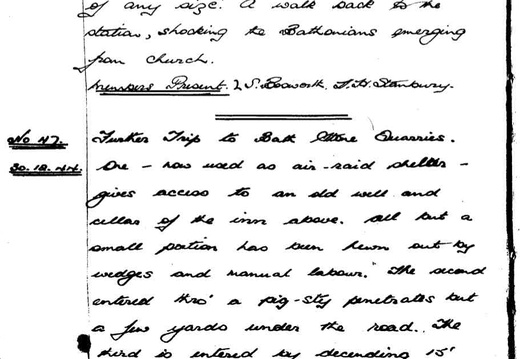 of any size. A walk back to the
station, shocking the Bathonians emerging
from church.
Members Present. L S. Bosworth, F. H. Stanbury.
No 47.
30.12.44.
Further Trip to Bath Stone Quarries.
One – now used as air-raid shelter –
gives access to an old well and
cellar of the inn above. All but a
small portion has been hewn out by
wedges and manual labour. The second
entered thro' a pig-sty penetrates but
a few yards under the road. The
third is entered by decending 15'